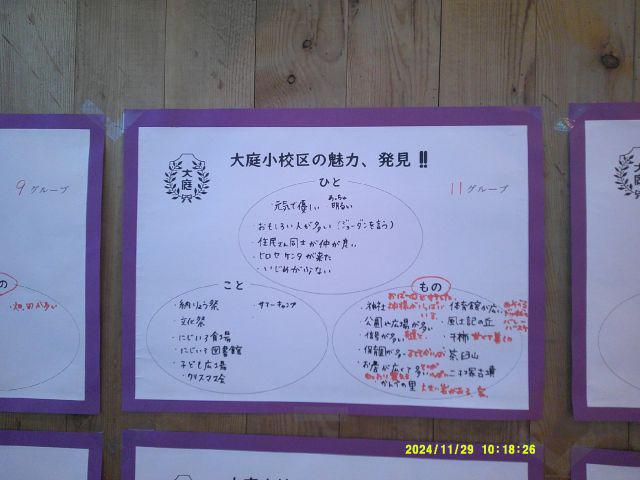 大庭小校区の魅力、発見!!
大庭
9グループ
11グループ
ひと
・元気で優しい 明るい
・おもしろい人が多い(ジョーダンを言う)
・住民さん同士が仲が良い
・ヒロセケンタが来た
・いじめが少ない
こと
・納りょう祭
・サマーキャンプ
・文化祭
・にじいろ食堂
・にじいろ図書館
・子ども広場
・クリスマス会
もの
・神社
・体育館が広い
・公園や広場が多い
・風土記の丘
・信号が多い
・干柿 甘くて
・保育園が多い
・茶臼山
・お店が広くて多い
・二子塚古墳
かんべの里
畑、田が多い
2024/11/29 10:18:26